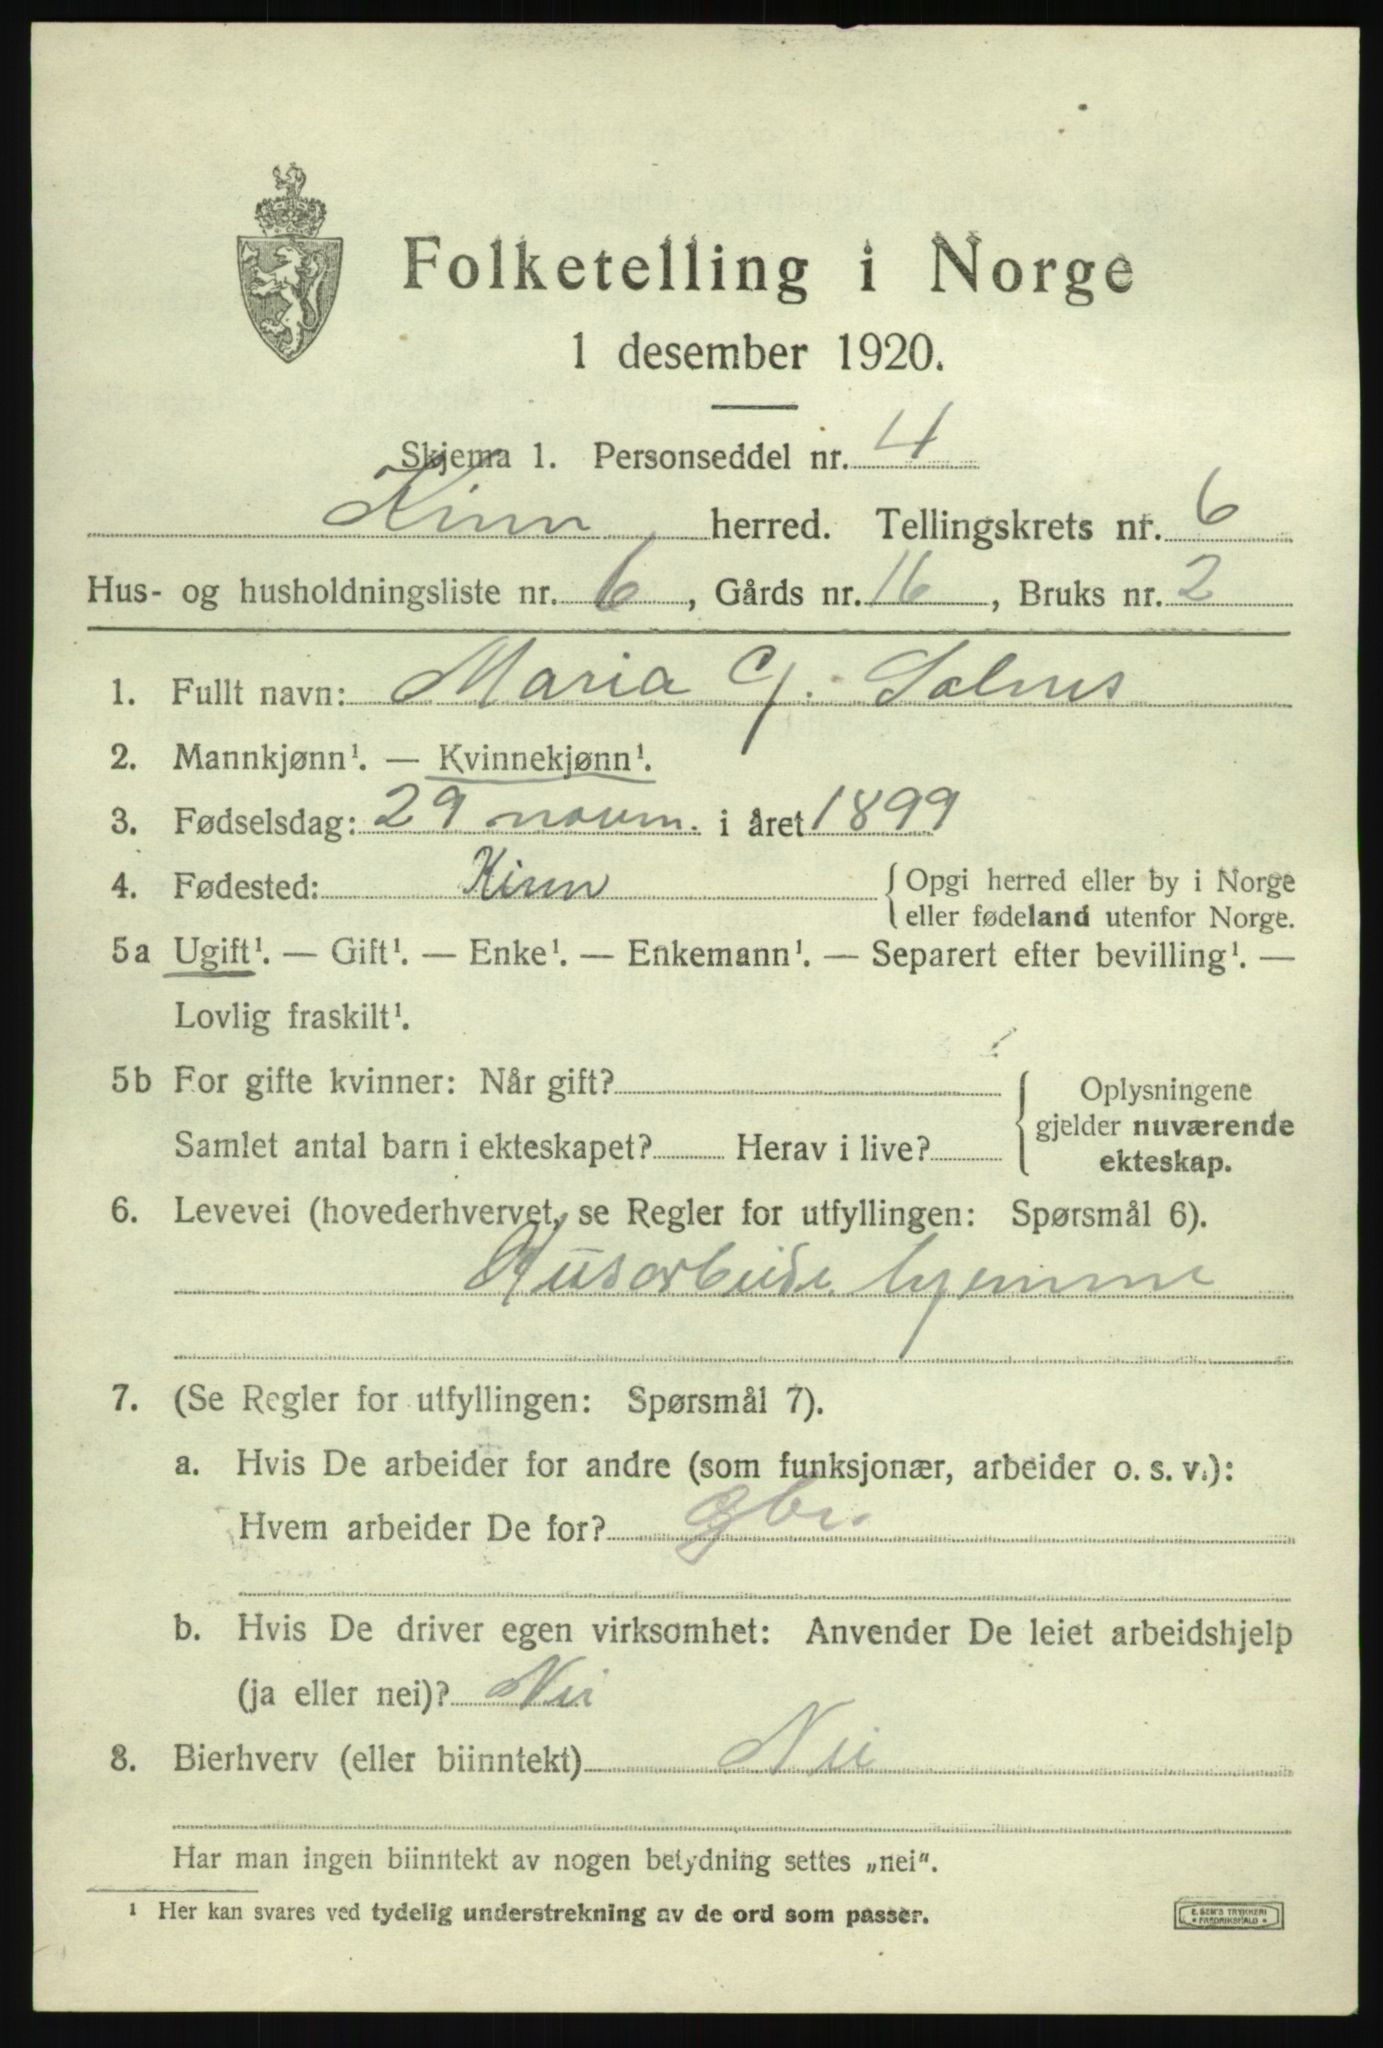 Folketelling i Norge
1 desember 1920.
Skjema 1. Personseddel nr. 4
Kinn herred. Tellingskrets nr. 6
Hus- og husholdningsliste nr. 6, Gårds nr. 16, Bruks nr. 2
1. Fullt navn: Maria J. Solnes
2. Mannkjønn¹. — Kvinnekjønn¹.
3. Fødselsdag: 29 novm. i året 1899
4. Fødested: Kinn { Opgi herred eller by i Norge
eller fødeland utenfor Norge.
5a Ugift¹. — Gift¹. — Enke¹. — Enkemann¹. — Separert efter bevilling¹. —
Lovlig fraskilt¹.
5b For gifte kvinner: Når gift?
Samlet antal barn i ekteskapet? Herav i live?
{ Oplysningene
gjelder nuværende
ekteskap.
6. Levevei (hovederhvervet, se Regler for utfyllingen: Spørsmål 6).
Husarbeide hjemme
7. (Se Regler for utfyllingen: Spørsmål 7).
a. Hvis De arbeider for andre (som funksjonær, arbeider o. s. v.):
Hvem arbeider De for? gbr.
b. Hvis De driver egen virksomhet: Anvender De leiet arbeidshjelp
(ja eller nei)? Nei
8. Bierhverv (eller biinntekt) Nei
Har man ingen biinntekt av nogen betydning settes „nei".
¹ Her kan svares ved tydelig understrekning av de ord som passer.
E. SEM'S TRYKKERI
• FREDRIKSHALD •